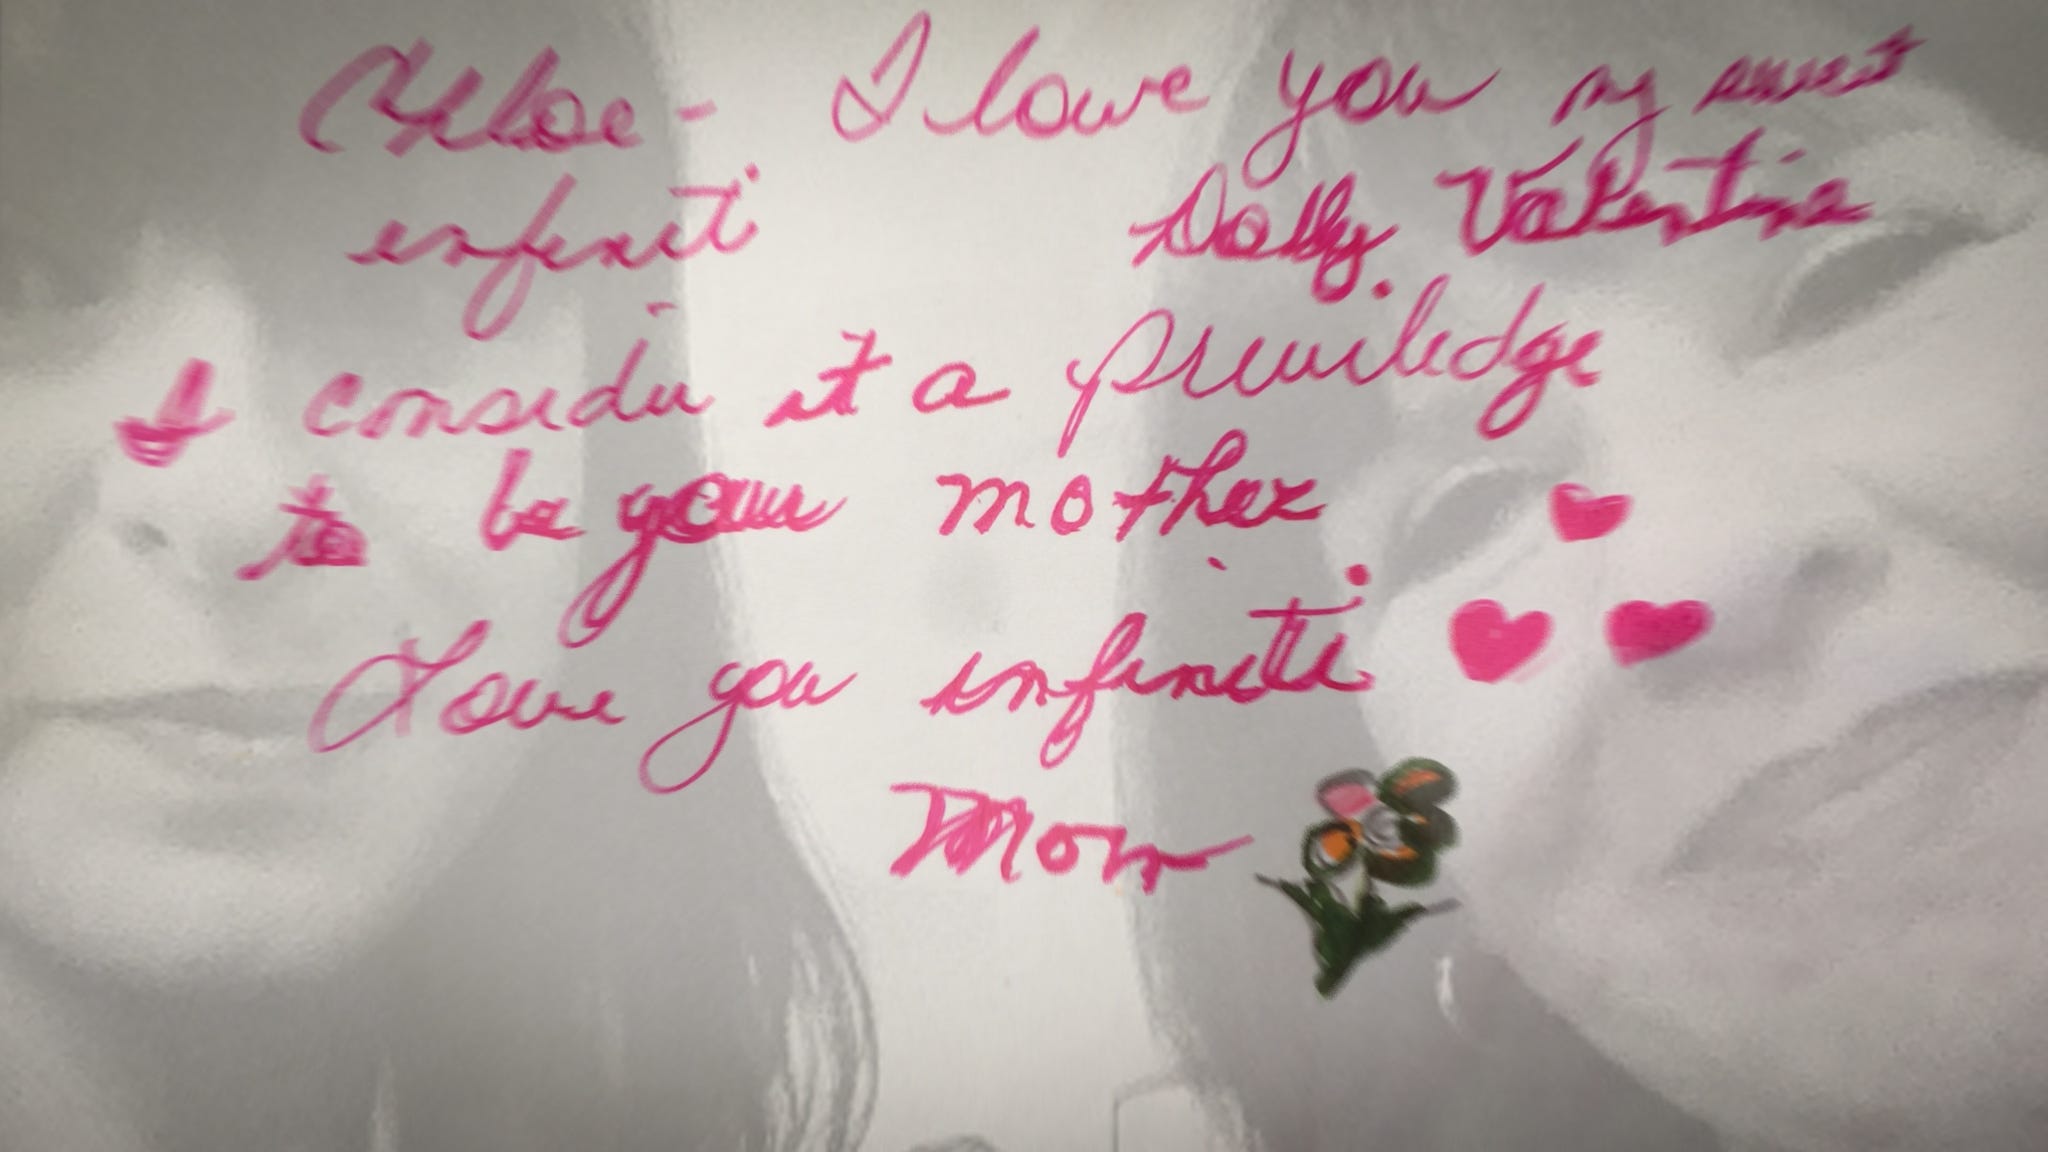 Chloe - I love you my sweet
infiniti Dolly Valentina
I consider it a priviledge
to be your mother
Love you infiniti
Mom